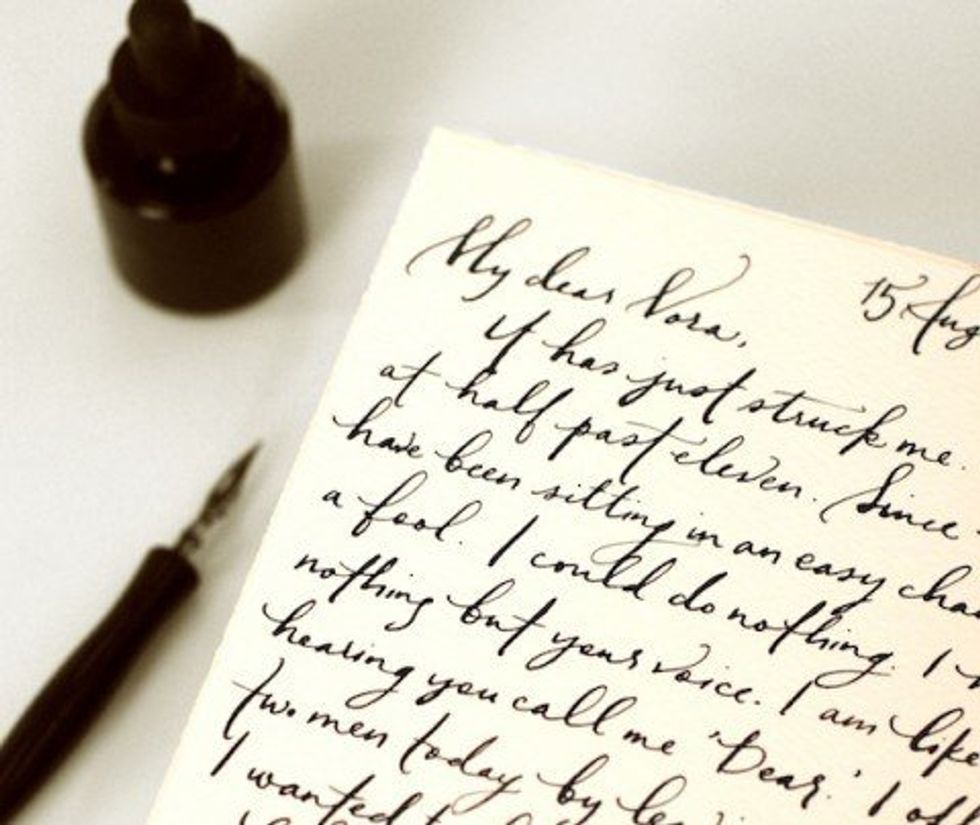 15 Aug
My dear Nora,
It has just struck me.
at half past eleven. Since
have been sitting in an easy cha
a fool. I could do nothing. I
nothing but your voice. I am like
hearing you call me 'Dear.' I off
two men today by le
I wanted